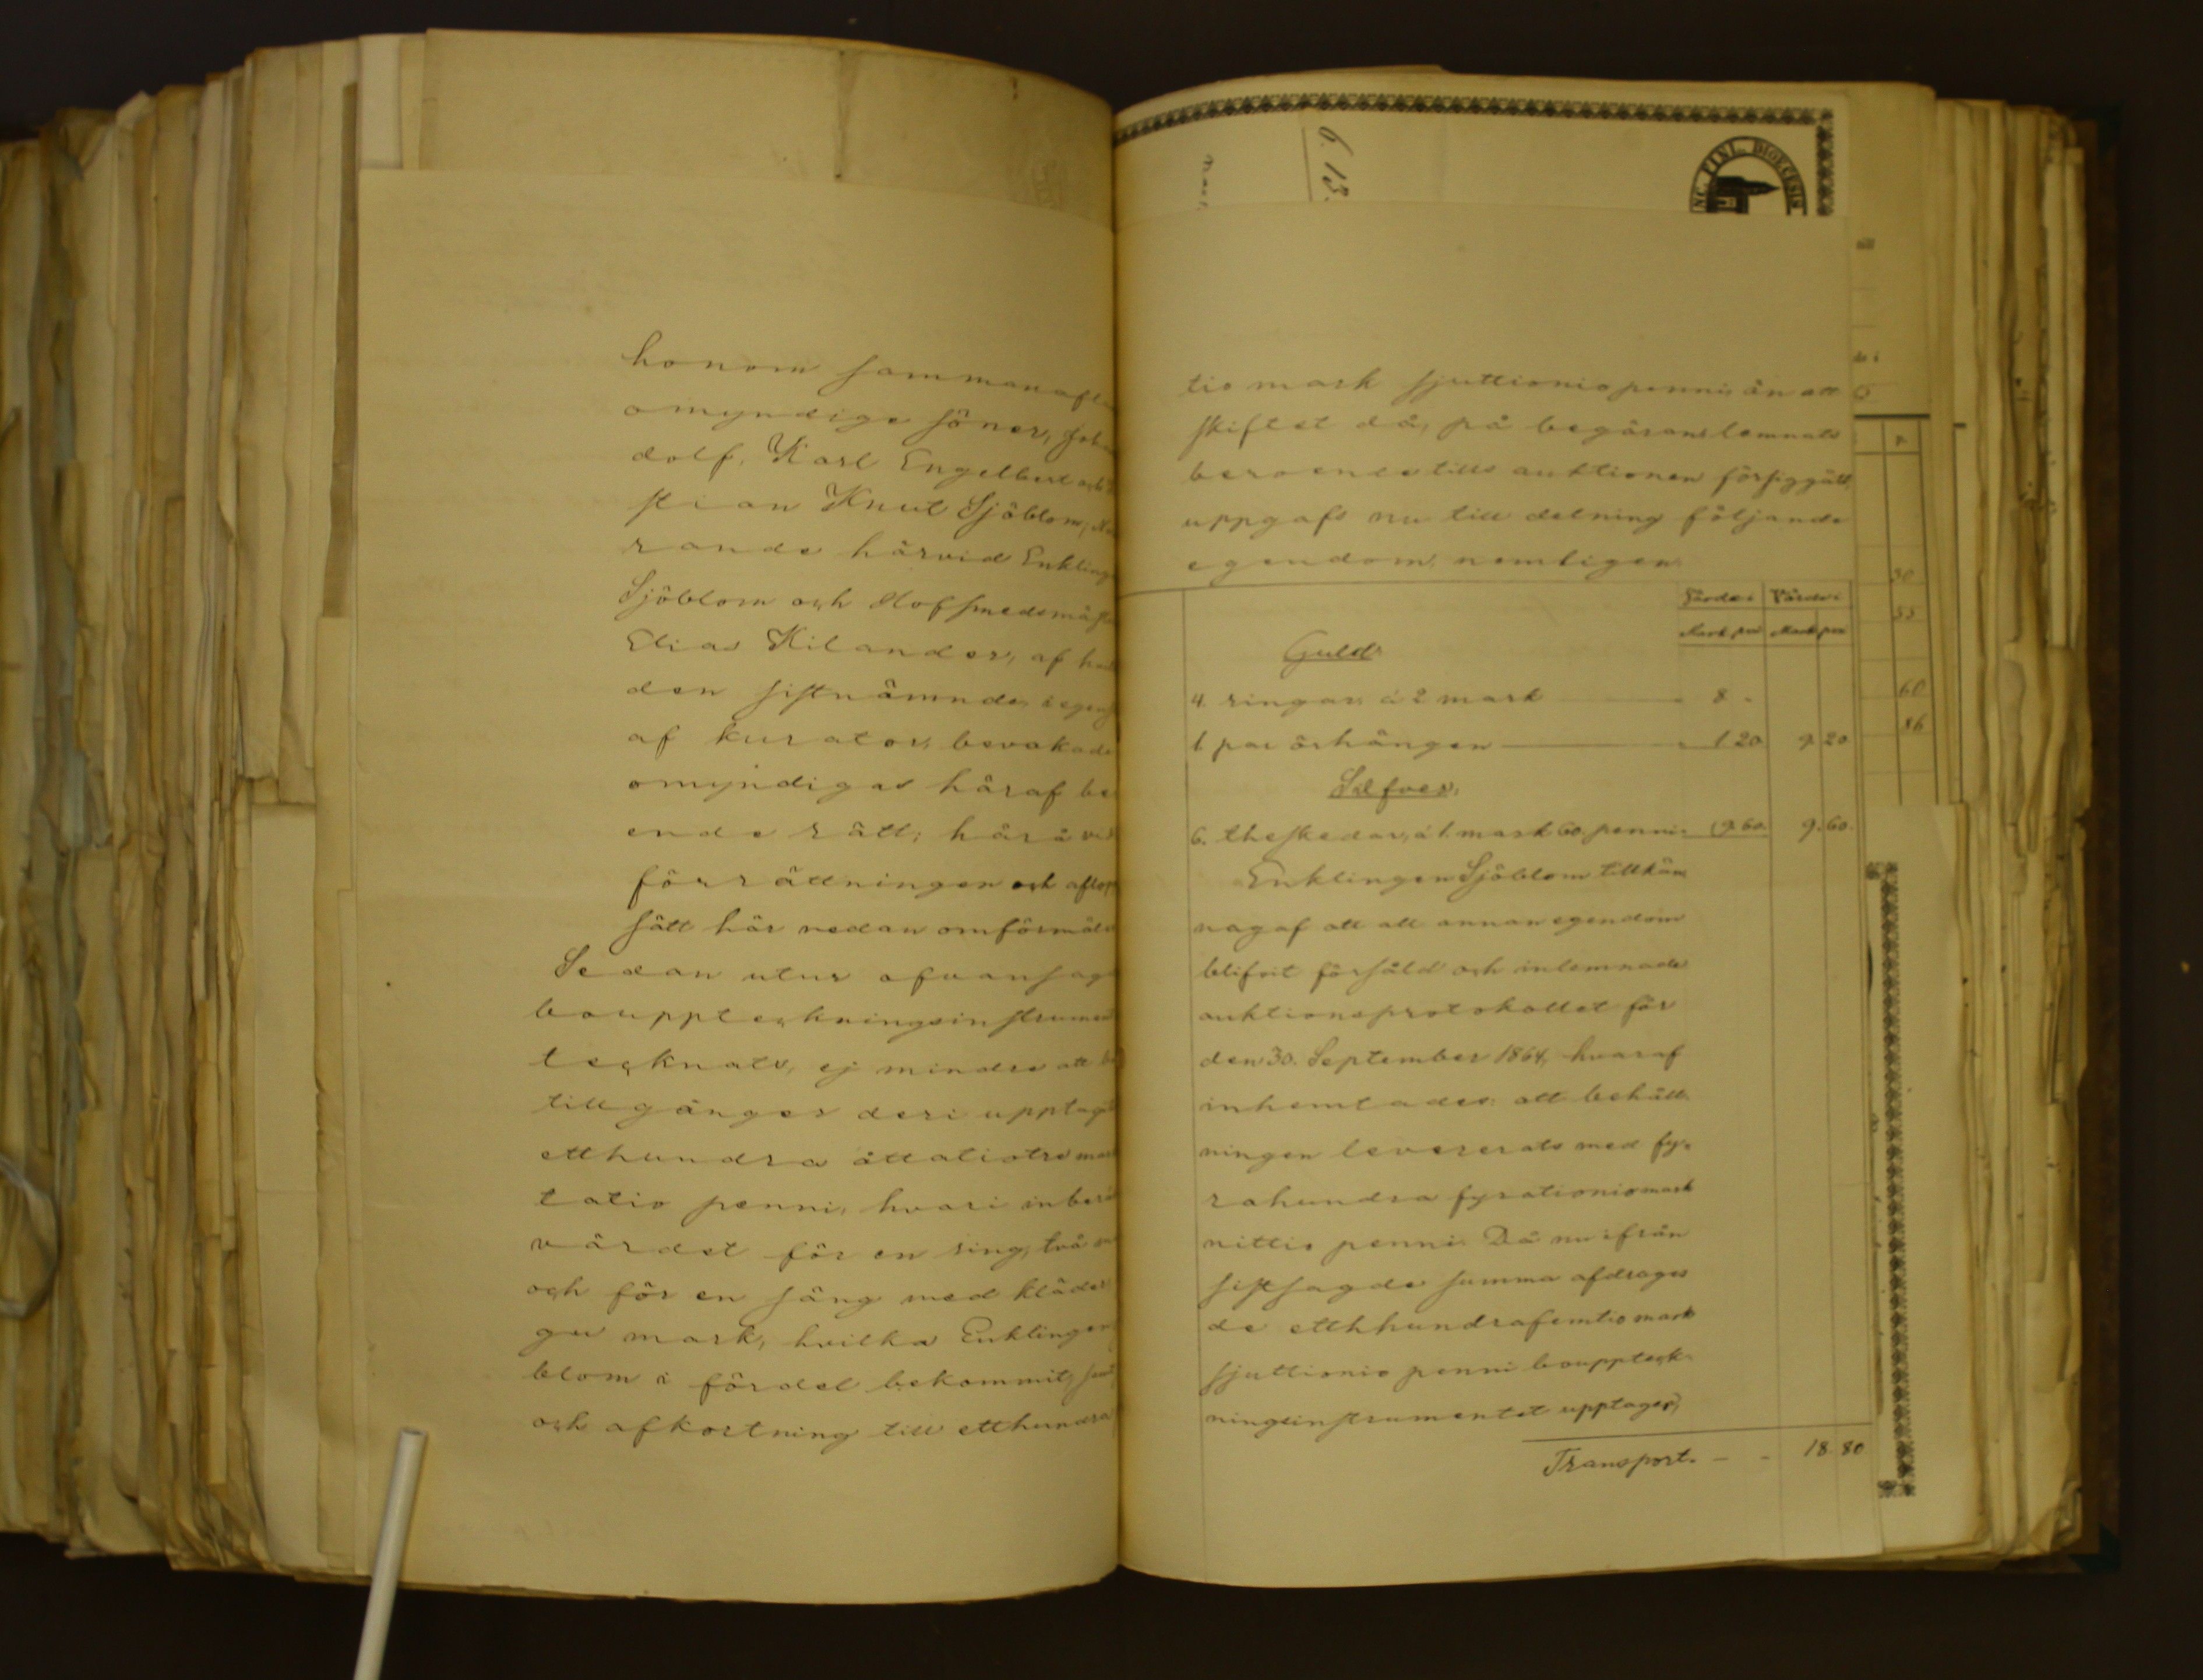 honom sammanafl
omyndige söner, Joh
dolf, Karl Engelbert och
stian Knut Sjöblom,
rande härvid Enkling
Sjöblom och Hofsmedsmäst
Elias Kilander, af
den sistnämnde, i egens
af kurator, bevakade
omyndigas häraf be
ende rätt; härå
förrättningen och aflop
sätt här nedan omförmäls
Sedan utur ofvansag
bouppteckningsinstrument
tecknats, ej mindre att
tillgångar deri upptag
etthundra åttatiotre mark
tatio penni, hvari inber
värdet för en ring, två
och för en säng med kläder
gu mark, hvilka Enklingen
blom i fördel bekommit,
och afkortning till etthundra
6. 13.
INC. FINL. DIOECESIS
tio mark sjuttionio penni, än att
skiftet då, på begäran, lemnats
beroende tills auktionen försiggått,
uppgafs nu till delning följande
egendom, nemligen
Värde i Värde i
Mark pni Mark pni
Guld
4. ringar à 2 mark 8 -
1. par örhängen 1 20 9 20
Silfver,
6. theskedar, à 1. mark 60. penni 9. 60. 9. 60.
Enklingen Sjöblom tillkän
nagaf att all annan egendom
blifvit försåld och inlemnade
auktionsprotokollet för
den 30. September 1864, hvaraf
inhemtades: att behåll
ningen levererats med fy-
rahundra fyrationio mark
nittio penni. Då nu ifrån
sistsagde summa afdrages
de etthhundrafemtio mark
sjuttionio penni bouppteck-
ningsinstrumentet upptager,
Transport. - - 18. 80
p.
50
55
60
86